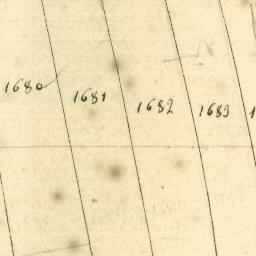 1680
1681
1682
1683